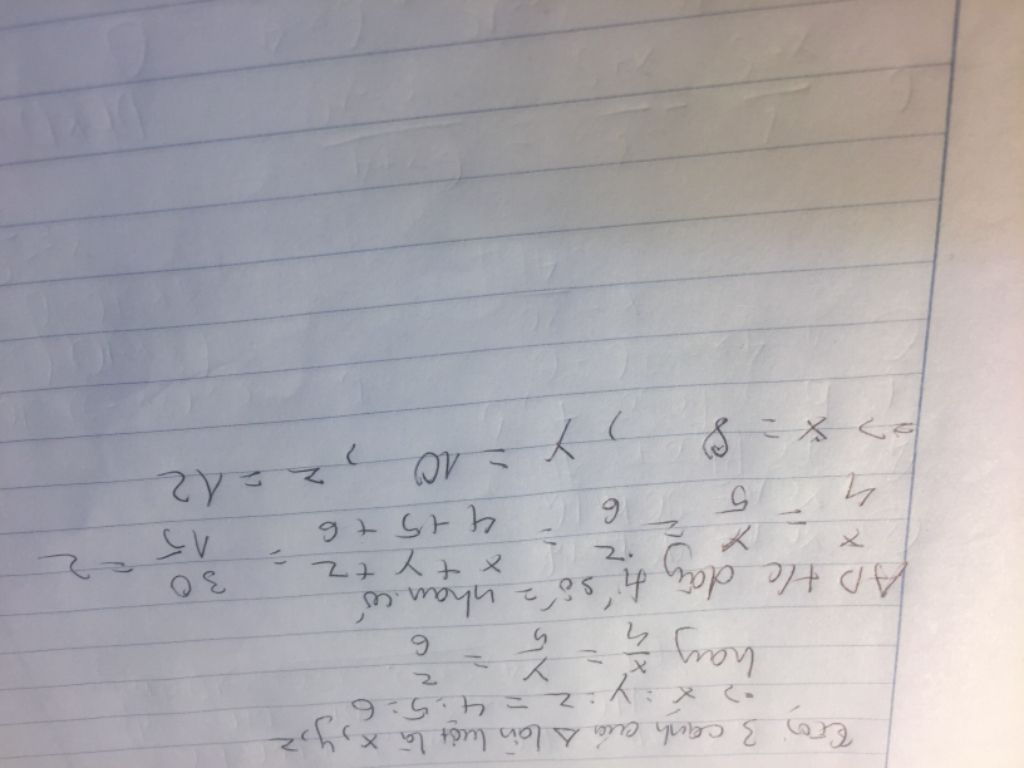 Gọi 3 cạnh của Δ lần lượt là x, y, z
=> x : y : z = 4 : 5 : 6
hay x/4 = y/5 = z/6
AD t/c dãy tỉ số = nhau có
x/4 = y/5 = z/6 = x + y + z/4 + 5 + 6 = 30/15 = 2
=> x = 8 , y = 10 , z = 12